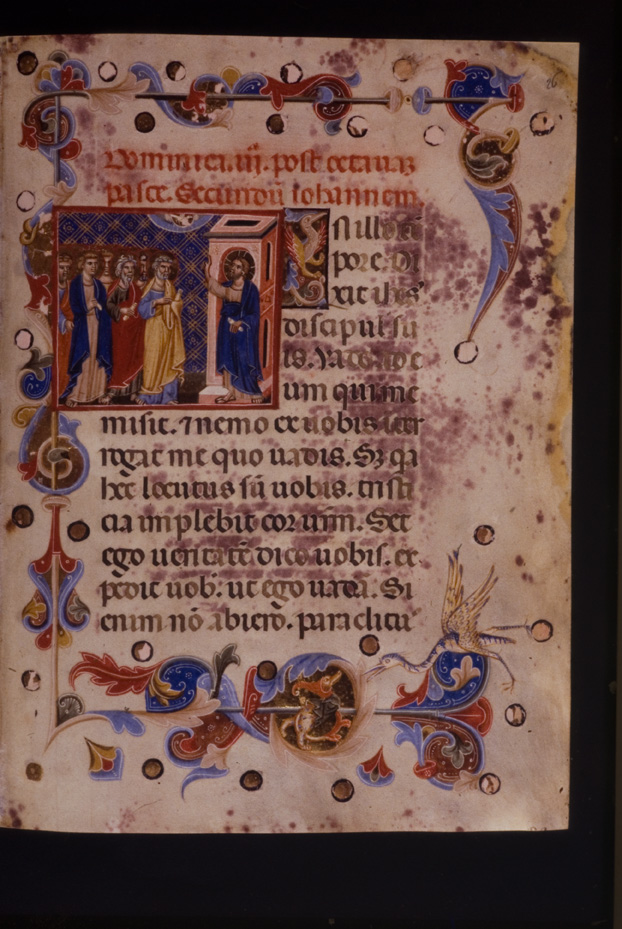 26
Dominica. iij. post octauaz
pasce. Secundū iohannem.
IN illo tē
pore. Di
xit ihes᾽
discipul᾽ su
is. Vado ad e
um qui me
misit. ⁊ nemo ex uobis iter
rogat me quo uadis. Sȝ qa
hec locutus sū uobis. tristi
cia impleuit cor urm̄. Set
ego ueritatē dico uobis. ex
pedit uob᾽. ut ego uadā. Si
enim nō abiero. paraclitu᾽